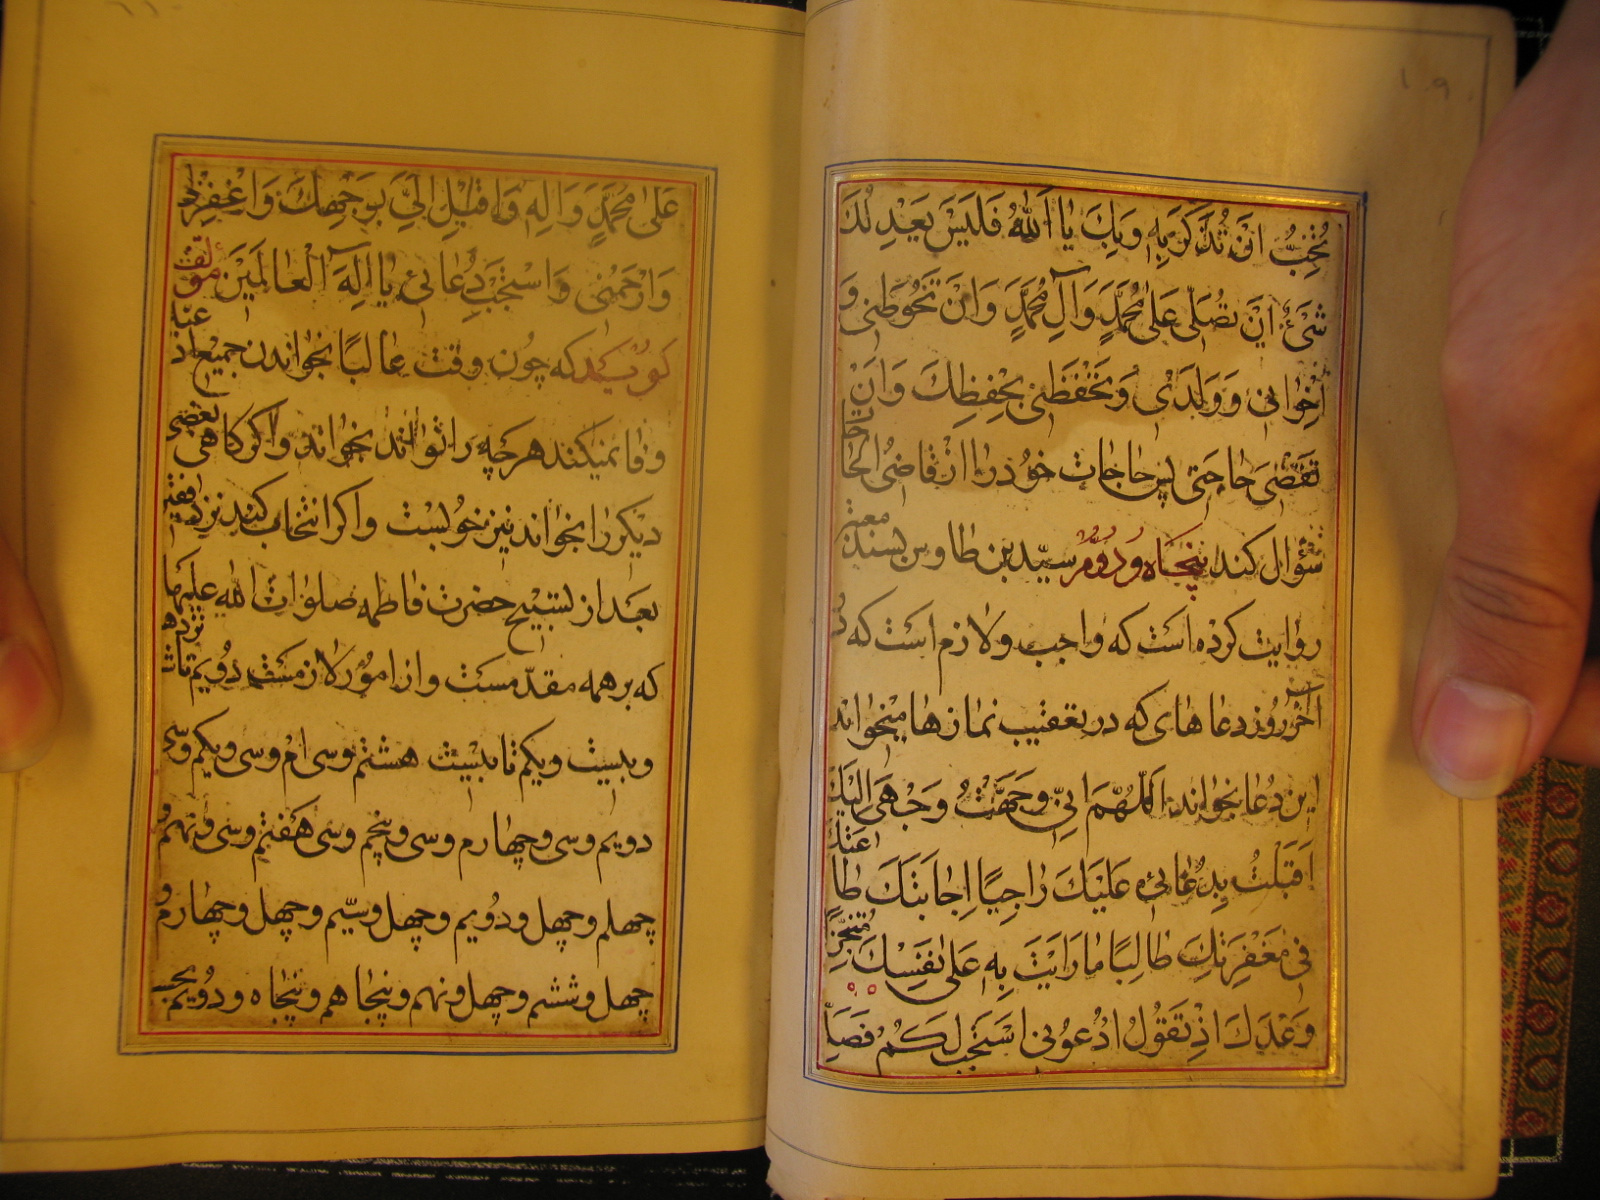 ١٠٩
تُحِبُّ اَنْ تُذْكَرَ بِهِ وَبِكَ يا اَللّٰهُ فَلَيْسَ يَعْدِلُكَ
شَىْءٌ اَنْ تُصَلِّىَ عَلىٰ مُحَمَّدٍ وَآلِ مُحَمَّدٍ وَاَنْ تَحُوطَنى وَ
اِخْوانى وَوَلَدى وَتَحْفَظَنى بِحِفْظِكَ وَاَنْ
تَقْضِىَ حاجَتى پس حاجات خود را از قاضى الحاجات
سؤال کند پنجاه ودویم سید بن طاوس بسند معتبر
روایت کرده است که واجب ولازم است که در
آخر روز دعاهاى که در تعقیب نمازها میخوانند
این دعا بخواند اَللّٰهُمَّ اِنّى وَجَّهْتُ وَجْهِىَ اِلَيْكَ
اَقْبَلْتُ بِدُعائى عَلَيْكَ راجِيًا اِجابَتَكَ طامِعًا
فى مَغْفِرَتِكَ طالِبًا ما وَاَيْتَ بِهِ عَلىٰ نَفْسِكَ مُتَنَجِّزًا
وَعْدَكَ اِذْ تَقُولُ ادْعُونى اَسْتَجِبْ لَكُمْ فَصَلِّ
عَلىٰ مُحَمَّدٍ وَآلِهِ وَاَقْبِلْ اِلَىَّ بِوَجْهِكَ وَاغْفِرْلى
وَارْحَمْنى وَاسْتَجِبْ دُعائى يا اِلٰهَ الْعالَمينَ مؤلف
کوید که چون وقت غالبا بخواندن جمیع ادعیه
وفا نمیکند هرچه را تواند بخواند واکر کاهى بعضى
دیکر را بخواند نیز خوبست واکر انتخاب کند نزد فقیر
بعد از تسبیح حضرت فاطمه صلوات الله علیها
که بر همه مقدمست واز امور لازمست دویم تا
وبیست ویکم تا بیست هشتم وسى ام وسى ویکم وسى
دویم وسى وچهارم وسى وپنجم وسى هفتم وسى ونهم و
چهلم وچهل ودویم وچهل وسیم وچهل وچهارم و
چهل وششم وچهل ونهم وپنجاهم وپنجاه ودویم